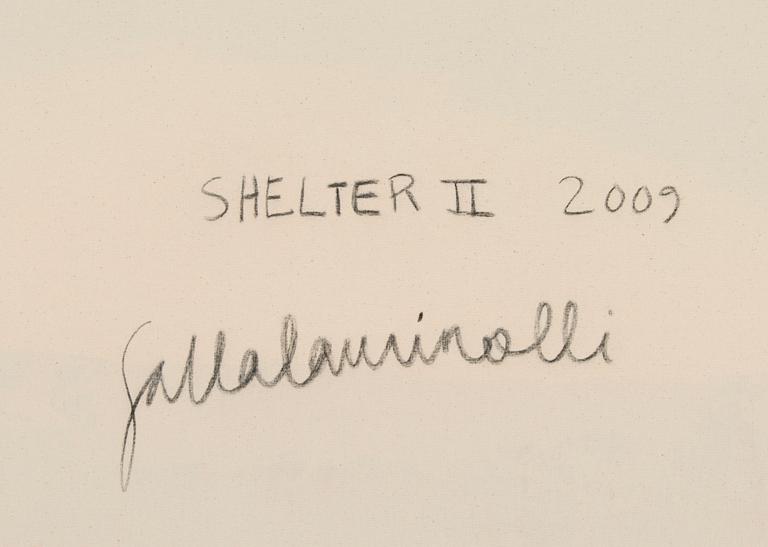 SHELTER II 2009
Sallalaurinolli